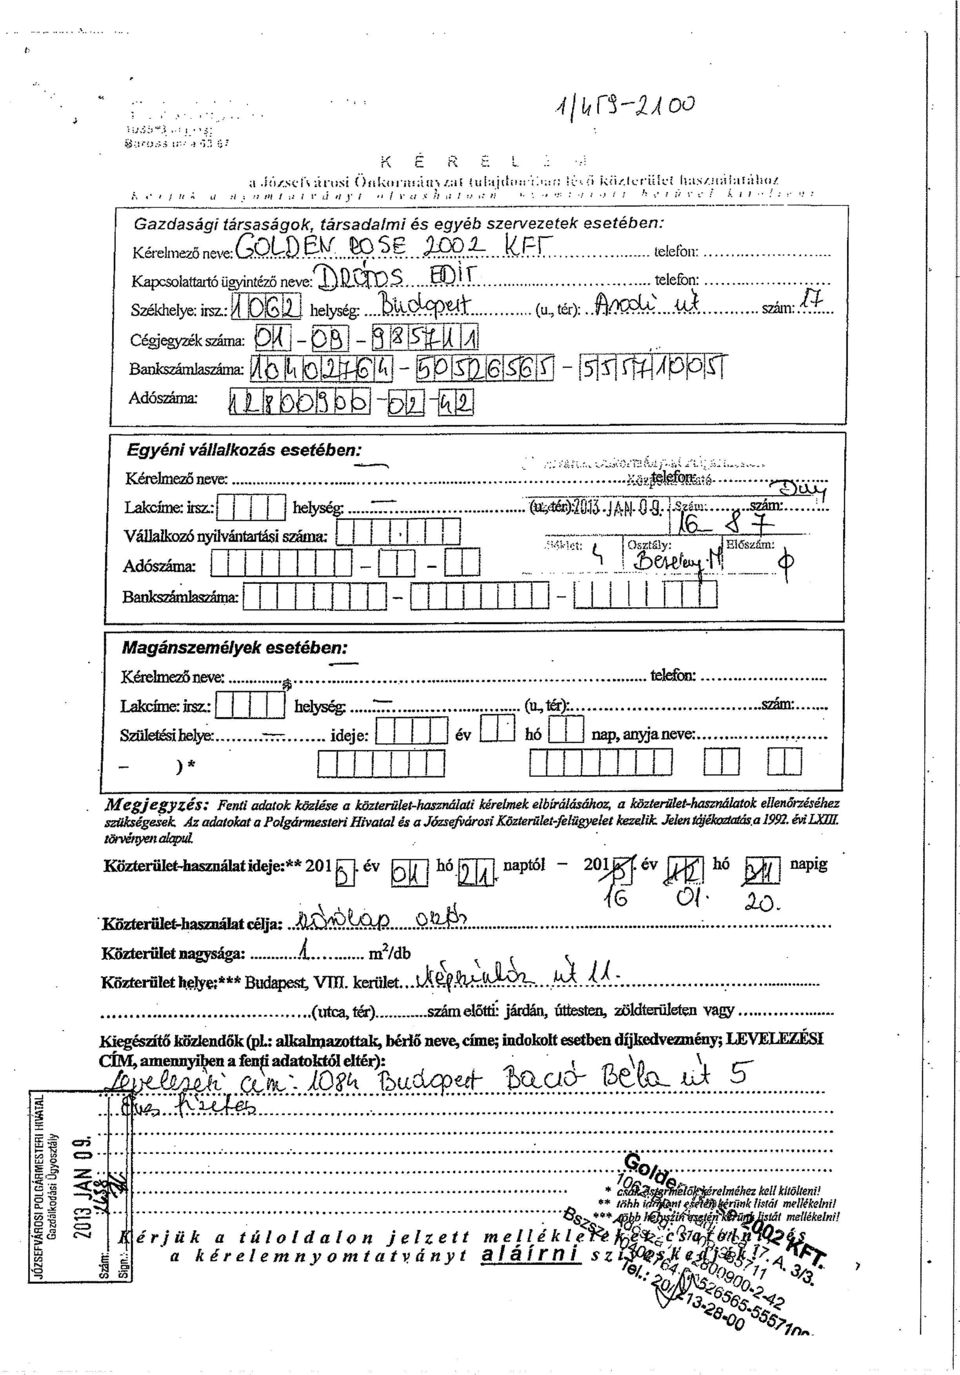 KÉRELEM
a Józsefvárosi Önkormányzat tulajdonában lévő közterület használatához
Gazdasági társaságok, társadalmi és egyéb szervezetek esetében:
Kérelmező neve: GOLDEN ROSE 2002 KFT telefon:
Kapcsolattartó ügyintéző neve: EDIT telefon:
Székhelye: irsz.: 1062 helység: Budapest (u., tér): Aradi út szám: 17
Cégjegyzék száma: 01-09-985711
Bankszámlaszáma: 10402764-50526565-55571005
Adószáma: 12800900-02-42
Egyéni vállalkozás esetében:
Kérelmező neve: telefon:
Lakcíme: irsz.: helység: (u., tér): 2013 JAN 09. Szám: szám:
16 87
Vállalkozó nyilvántartási száma:
Melléklet: 4 Osztály: Előszám:
Adószáma: - -
Bankszámlaszáma: - -
Magánszemélyek esetében:
Kérelmező neve: telefon:
Lakcíme: irsz.: helység: (u., tér): szám:
Születési helye: ideje: év hó nap, anyja neve:
- )*
Megjegyzés: Fenti adatok közlése a közterület-használati kérelmek elbírálásához, a közterület-használatok ellenőrzéséhez
szükségesek. Az adatokat a Polgármesteri Hivatal és a Józsefvárosi Közterület-felügyelet kezelik. Jelen tájékoztatás a 1992. évi LXIII.
törvényen alapul.
Közterület-használat ideje:** 2013 év 01 hó 21. naptól - 201 év hó napig
16 01. 20.
Közterület-használat célja:
Közterület nagysága: 1 m²/db
Közterület helye:*** Budapest, VIII. kerület Népszínház út 11.
(utca, tér) szám előtti: járdán, úttesten, zöldterületen vagy
Kiegészítő közlendők (pl.: alkalmazottak, bérlő neve, címe; indokolt esetben díjkedvezmény; LEVELEZÉSI
CÍM, amennyiben a fenti adatoktól eltér):
Levelezési cím: 1084 Budapest Bacsó Béla út 5
éves fizetés
JÓZSEFVÁROSI POLGÁRMESTERI HIVATAL
Gazdálkodási Ügyosztály
2013 JAN 09.
Szám:
Sign.:
* csak kérelméhez kell kitölteni!
** több időpont esetén kérünk listát mellékelni!
*** több helyszín esetén kérünk listát mellékelni!
Kérjük a túloldalon jelzett mellékletek csatolni és
a kérelemnyomtatványt aláírni szíveskedjék!
Golden Rose 2002 KFT.
17. A. 3/3.
12800900-2-42
10402764-50526565-5557100
Tel.: 20/213-28-00